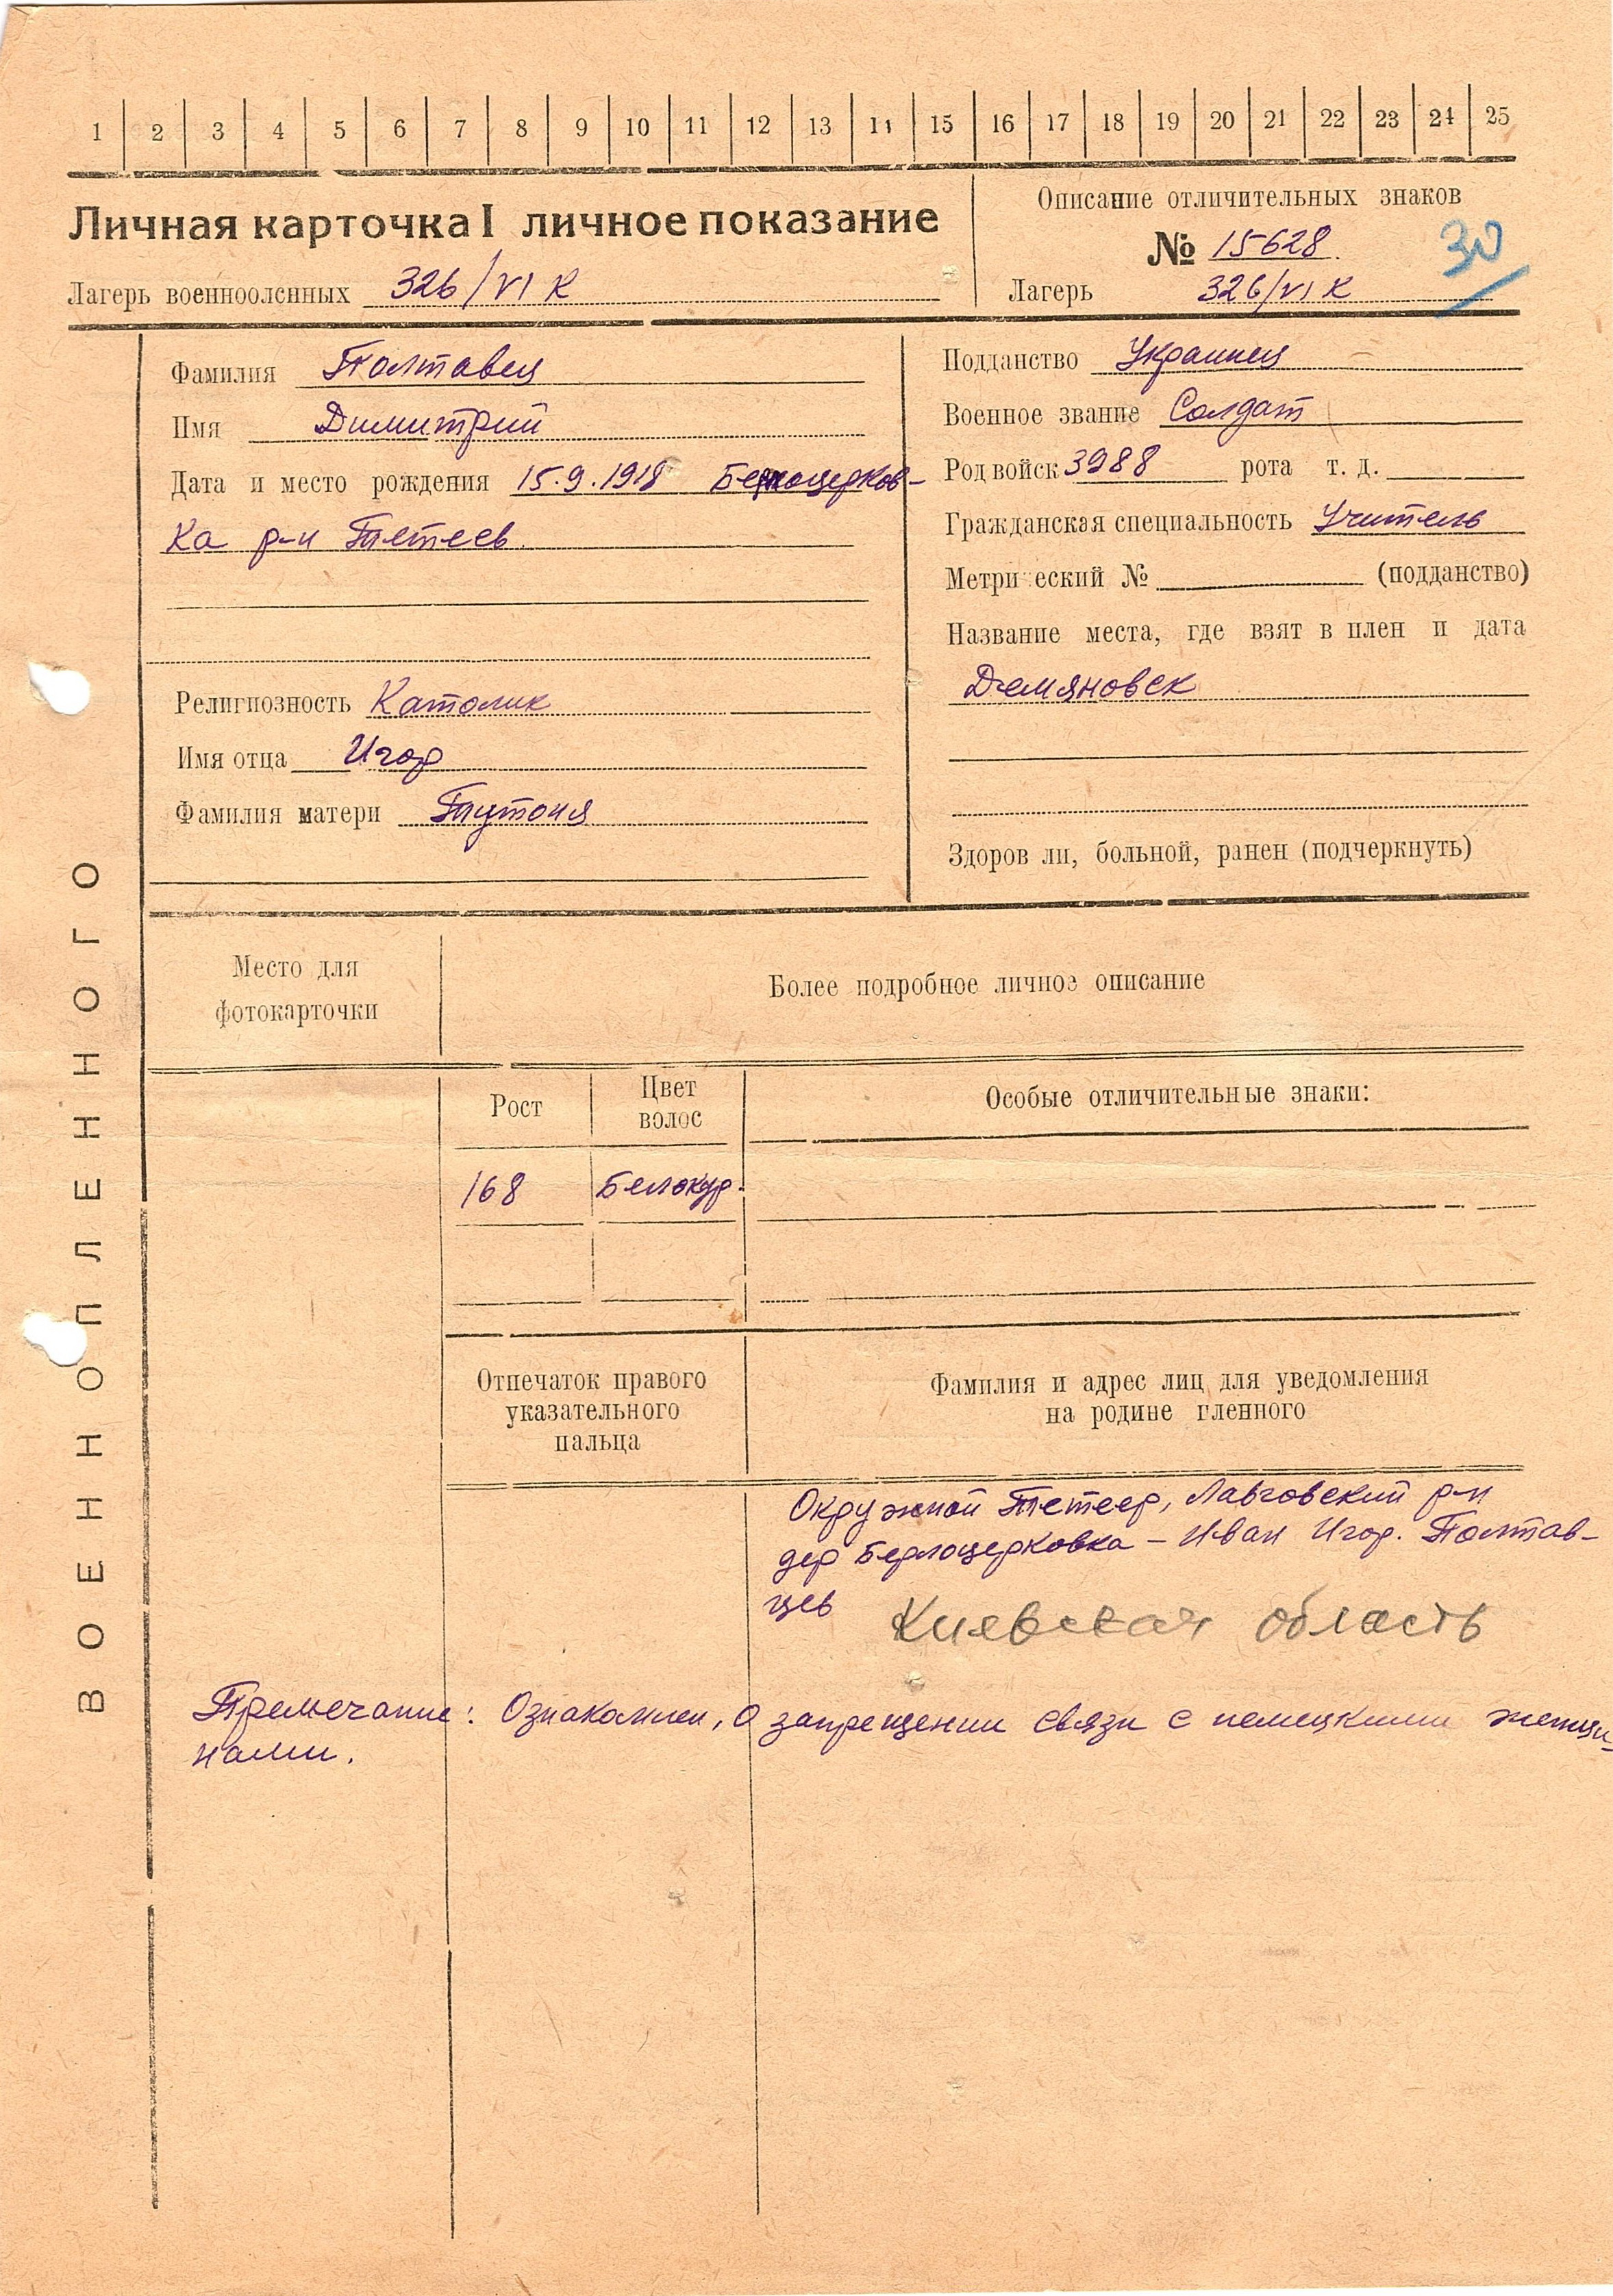 1 2 3 4 5 6 7 8 9 10 11 12 13 14 15 16 17 18 19 20 21 22 23 24 25
Личная карточка I личное показание
Лагерь военноопленных 326/VI K
Описание отличительных знаков
№ 15628
30
Лагерь 326/VI K
Фамилия Полтавец
Имя Димитрий
Дата и место рождения 15.9.1918 Берлоцерков-
ка р-н Тетеев
Религиозность Католик
Имя отца Игор
Фамилия матери
Подданство Украинец
Военное звание Солдат
Род войск 3988 рота т. д.
Гражданская специальность Учитель
Метрический № (подданство)
Название места, где взят в плен и дата
Демяновск
Здоров ли, больной, ранен (подчеркнуть)
ВОЕННОПЛЕННОГО
Место для
фотокарточки
Более подробное личное описание
Рост
Цвет
волос
Особые отличительные знаки:
168
Белокур.
Отпечаток правого
указательного
пальца
Фамилия и адрес лиц для уведомления
на родине пленного
Окружной Тетеер, Лавговский р-н
дер Берлоцерковка – Иван Игор. Полтав-
цев
Киевская область
Премечание: Ознакомлен, о запрещении связи с немецкими женщи-
нами.